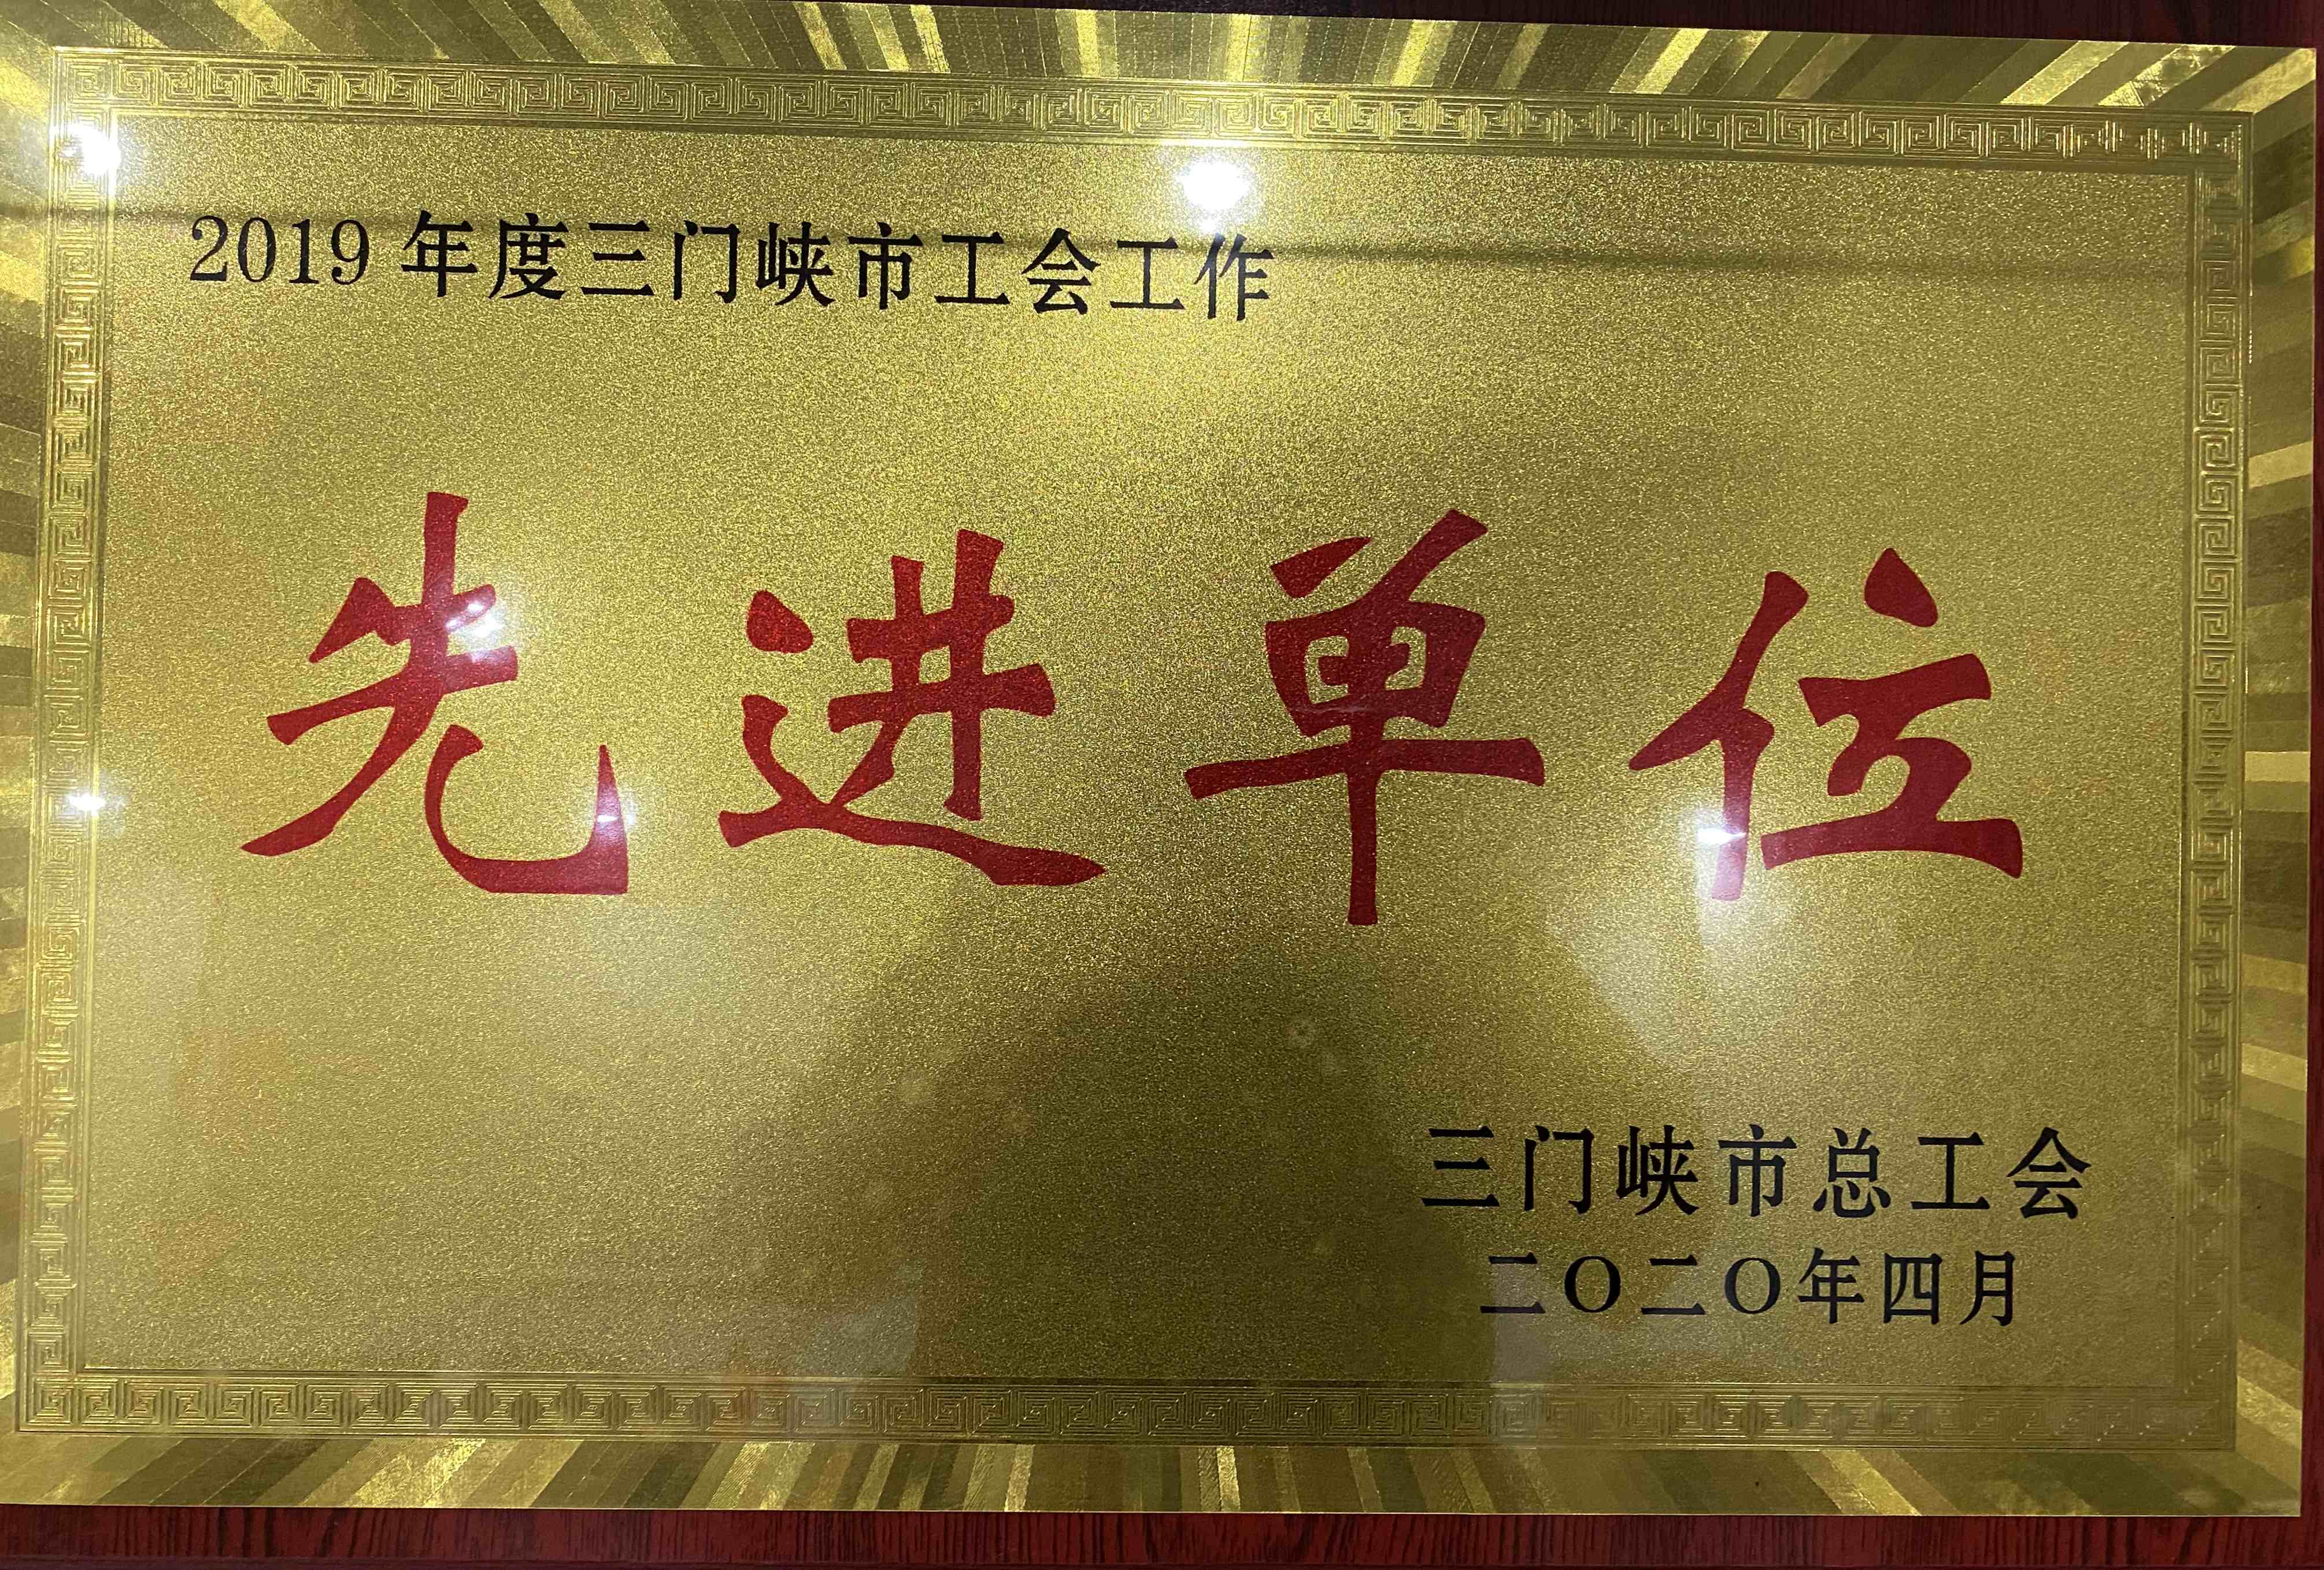 2019年度三门峡市工会工作
先进单位
三门峡市总工会
二〇二〇年四月